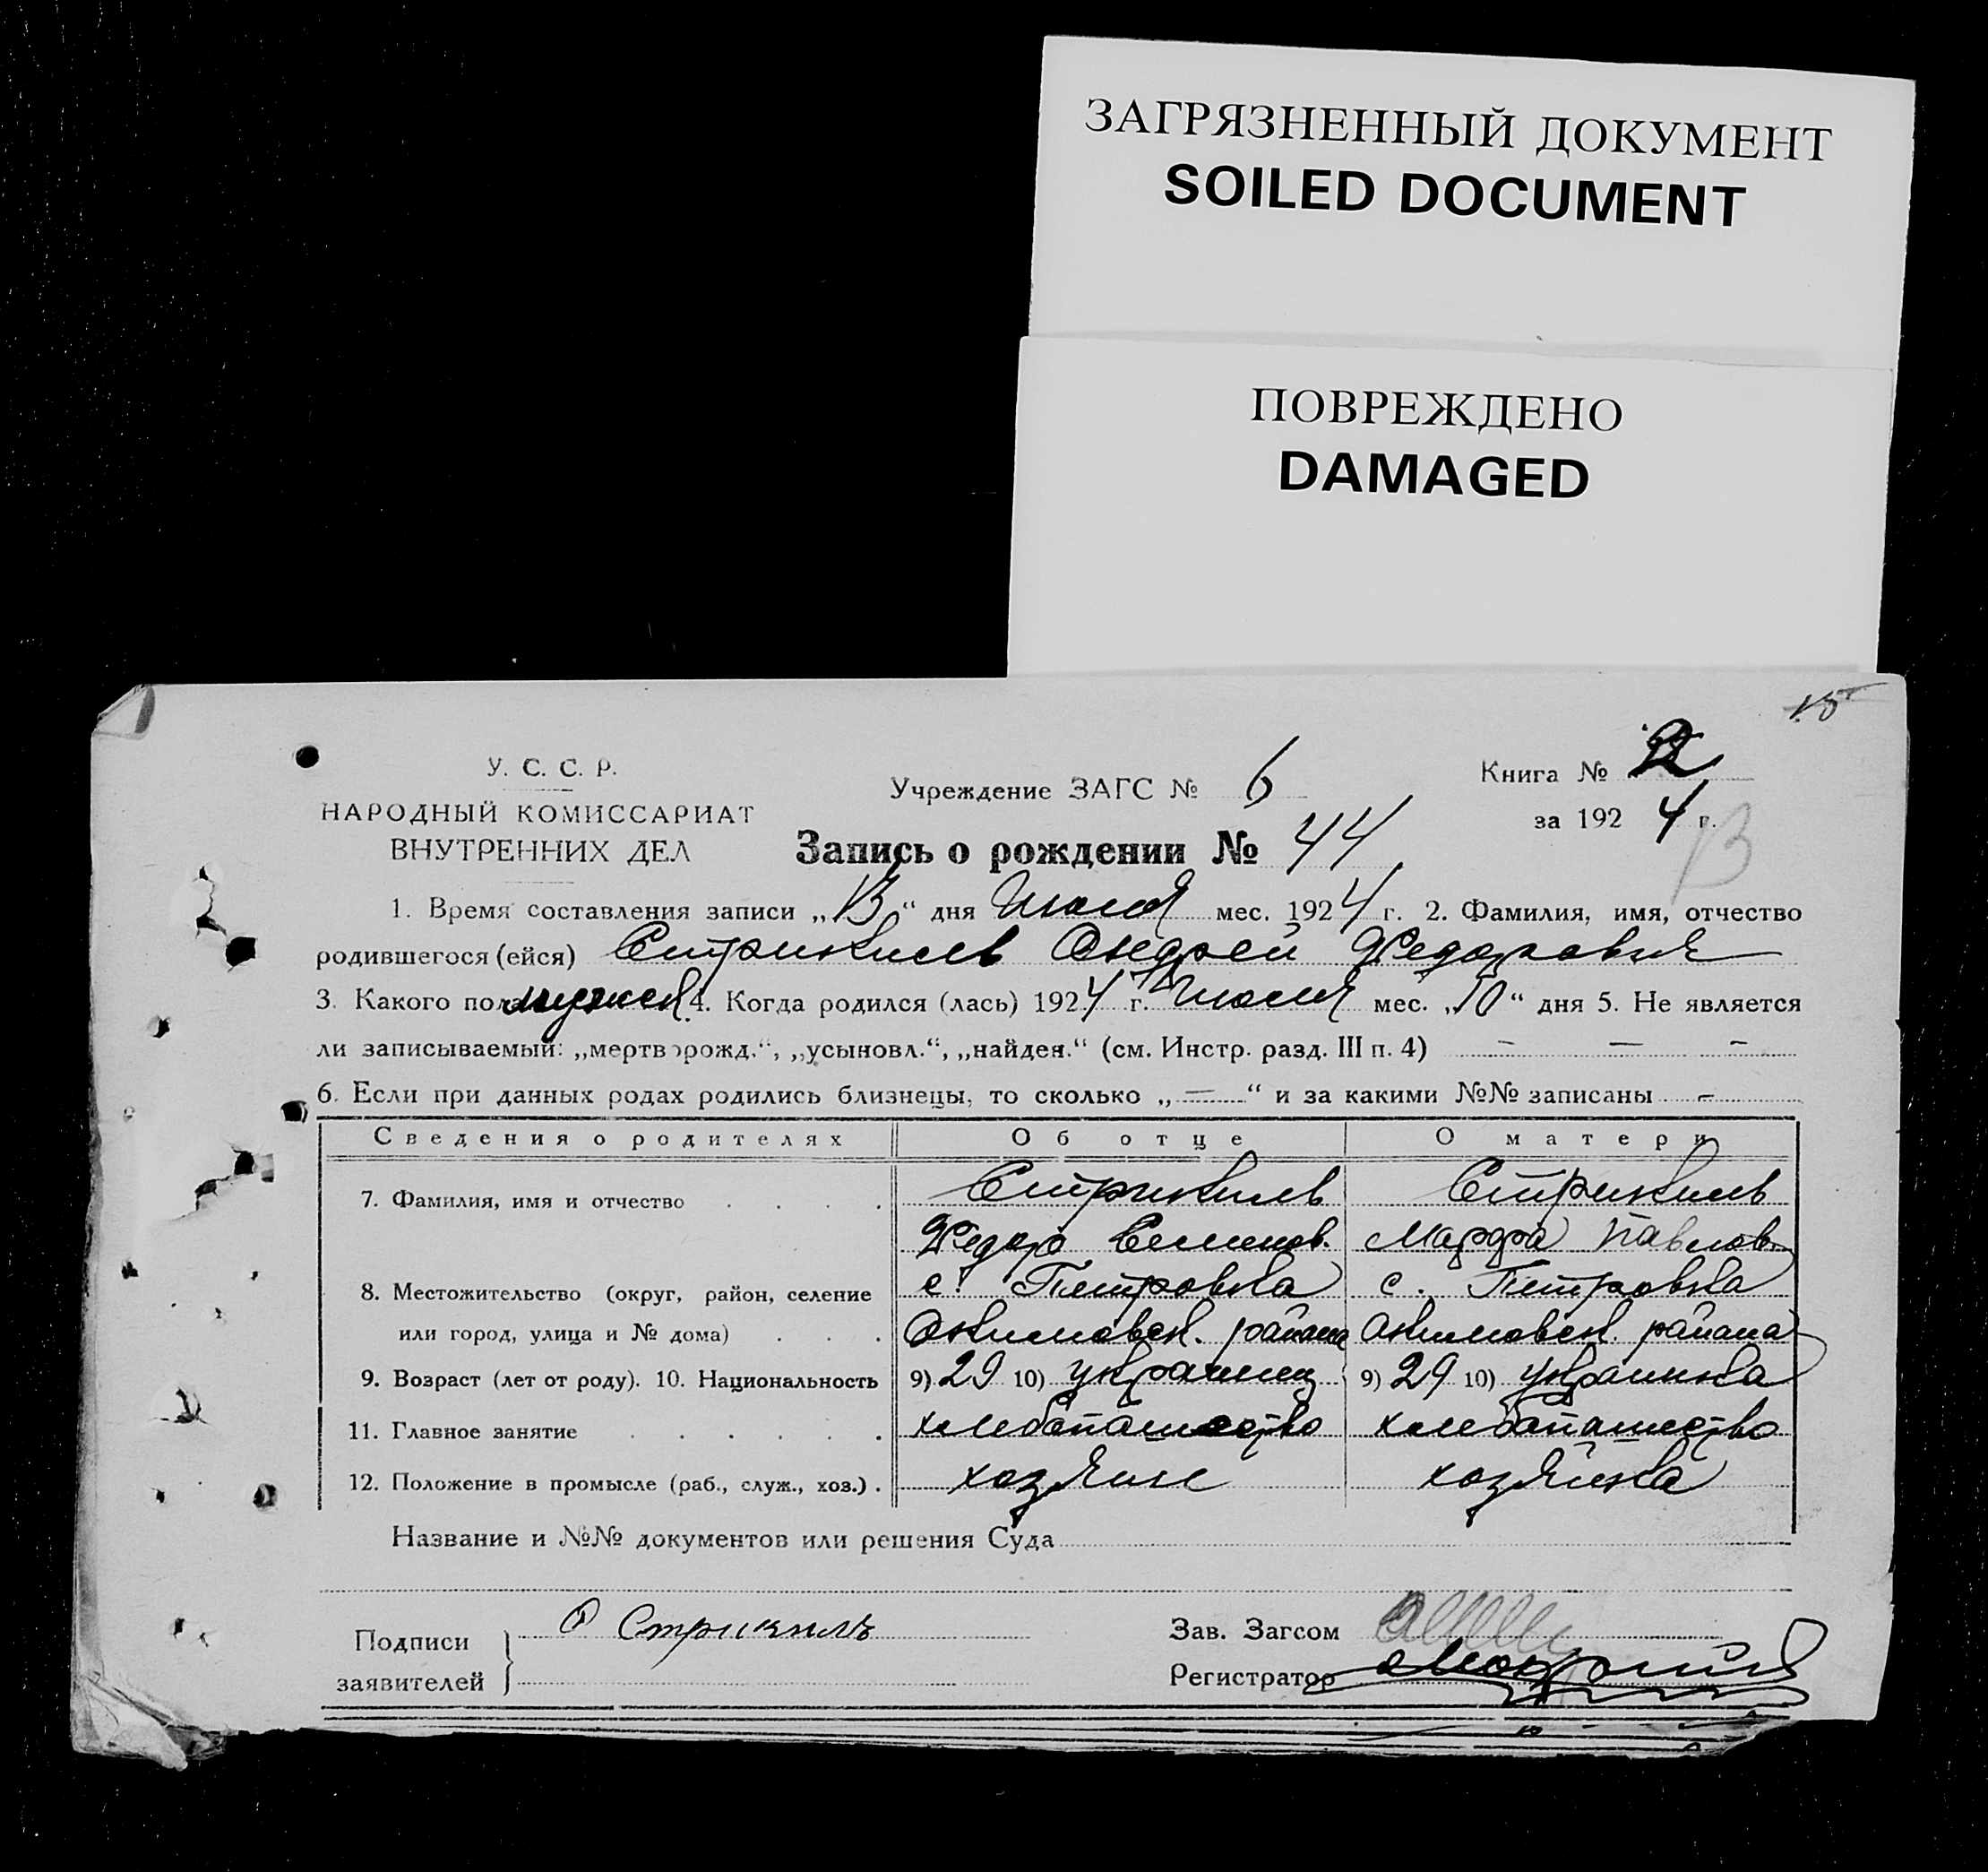 ЗАГРЯЗНЕННЫЙ ДОКУМЕНТ
SOILED DOCUMENT
ПОВРЕЖДЕНО
DAMAGED
15
У. С. С. Р.
НАРОДНЫЙ КОМИССАРИАТ
ВНУТРЕННИХ ДЕЛ
Учреждение ЗАГС № 6
Книга № 2
за 1924 г.
13
Запись о рождении № 44
1. Время составления записи „13“ дня Июля мес. 1924 г. 2. Фамилия, имя, отчество
родившегося (ейся) Стрикиль Андрей Федорович
3. Какого пола мужск 4. Когда родился (лась) 1924 г. Июля мес. „10“ дня 5. Не является
ли записываемый: „мертворожд.“, „усыновл.“, „найден.“ (см. Инстр. разд. III п. 4) — — —
6. Если при данных родах родились близнецы, то сколько „—“ и за какими №№ записаны —
Сведения о родителях Об отце О матери
7. Фамилия, имя и отчество . . . . Стрикиль Стрикиль
Федор Семенов. Марфа Павловн
8. Местожительство (округ, район, селение с. Петровка с. Петровка
или город, улица и № дома) . . . Акимовск. района Акимовск. района
9. Возраст (лет от роду). 10. Национальность 9) 29 10) украинец 9) 29 10) украинка
11. Главное занятие . . . . . . хлебопашество хлебопашество
12. Положение в промысле (раб., служ., хоз.) . хозяин хозяйка
Название и №№ документов или решения Суда
Подписи заявителей } Ф Стрикиль
Зав. Загсом
Регистратор